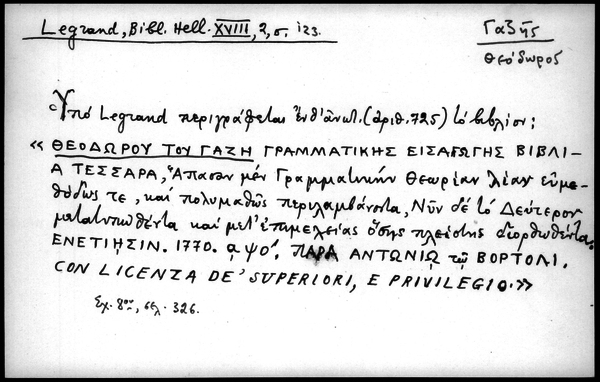 Legrand, Bibl. Hell. XVIII, 2, σ. 123.
Γαζῆς
Θεόδωρος
Ὑπό Legrand περιγράφεται ἐνθ' ἀνωτ. (ἀριθ. 725) τό βιβλίον:
«ΘΕΟΔΩΡΟΥ ΤΟΥ ΓΑΖΗ ΓΡΑΜΜΑΤΙΚΗΣ ΕΙΣΑΓΩΓΗΣ ΒΙΒΛΙ-
Α ΤΕΣΣΑΡΑ, Ἅπασαν μέν Γραμματικήν Θεωρίαν λίαν εὐμε-
θόδως τε, καί πολυμαθῶς περιλαμβάνοντα, Νῦν δέ τό Δεύτερον
μετατυπωθέντα καί μετ' ἐπιμελείας ὅσης πλείστης διορθωθέντα.
ΕΝΕΤΙΗΣΙΝ. 1770. αψο΄. ΠΑΡΑ ΑΝΤΩΝΙῼ τῷ ΒΟΡΤΟΛΙ.
CON LICENZA DE' SUPERIORI, E PRIVILEGIO.»
Σχ. 8ον, σελ. 326.